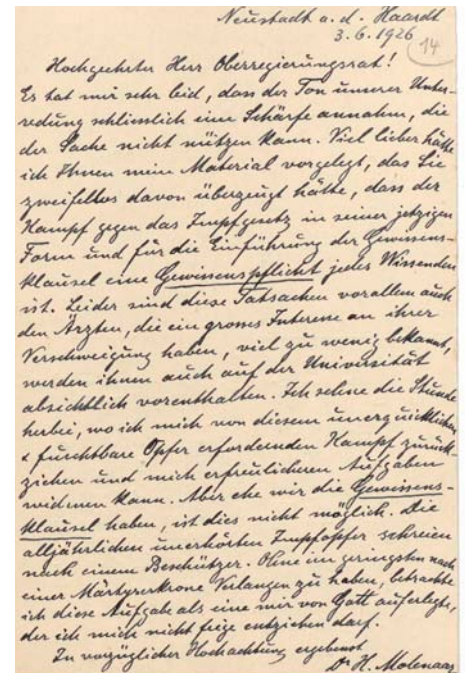 Neustadt a. d. Haardt
3. 6. 1926
14
Hochgeehrter Herr Oberregierungsrat!
Es tat mir sehr leid, dass der Ton unserer Unter-
redung schliesslich eine Schärfe annahm, die
der Sache nicht nützen kann. Viel lieber hätte
ich Ihnen mein Material vorgelegt, das Sie
zweifellos davon überzeugt hätte, dass der
Kampf gegen das Impfgesetz in seiner jetzigen
Form und für die Einführung der Gewissens-
klausel eine Gewissenspflicht jedes Wissenden
ist. Leider sind diese Tatsachen vorallem auch
den Ärzten, die ein grosses Interesse an ihrer
Verschweigung haben, viel zu wenig bekannt,
werden ihnen auch auf der Universität
absichtlich vorenthalten. Ich sehne die Stunde
herbei, wo ich mich von diesem unerquicklichen
& furchtbare Opfer erfordernden Kampf zurück-
ziehen und mich erfreulicheren Aufgaben
widmen kann. Aber ehe wir die Gewissens-
klausel haben, ist dies nicht möglich. Die
alljährlichen unerhörten Impfopfer schreien
nach einem Beschützer. Ohne im geringsten nach
einer Märtyrerkrone Verlangen zu haben, betrachte
ich diese Aufgabe als eine mir von Gott auferlegte,
der ich mich nicht feige entziehen darf.
In vorzüglicher Hochachtung ergebenst
Dr H. Molenaar